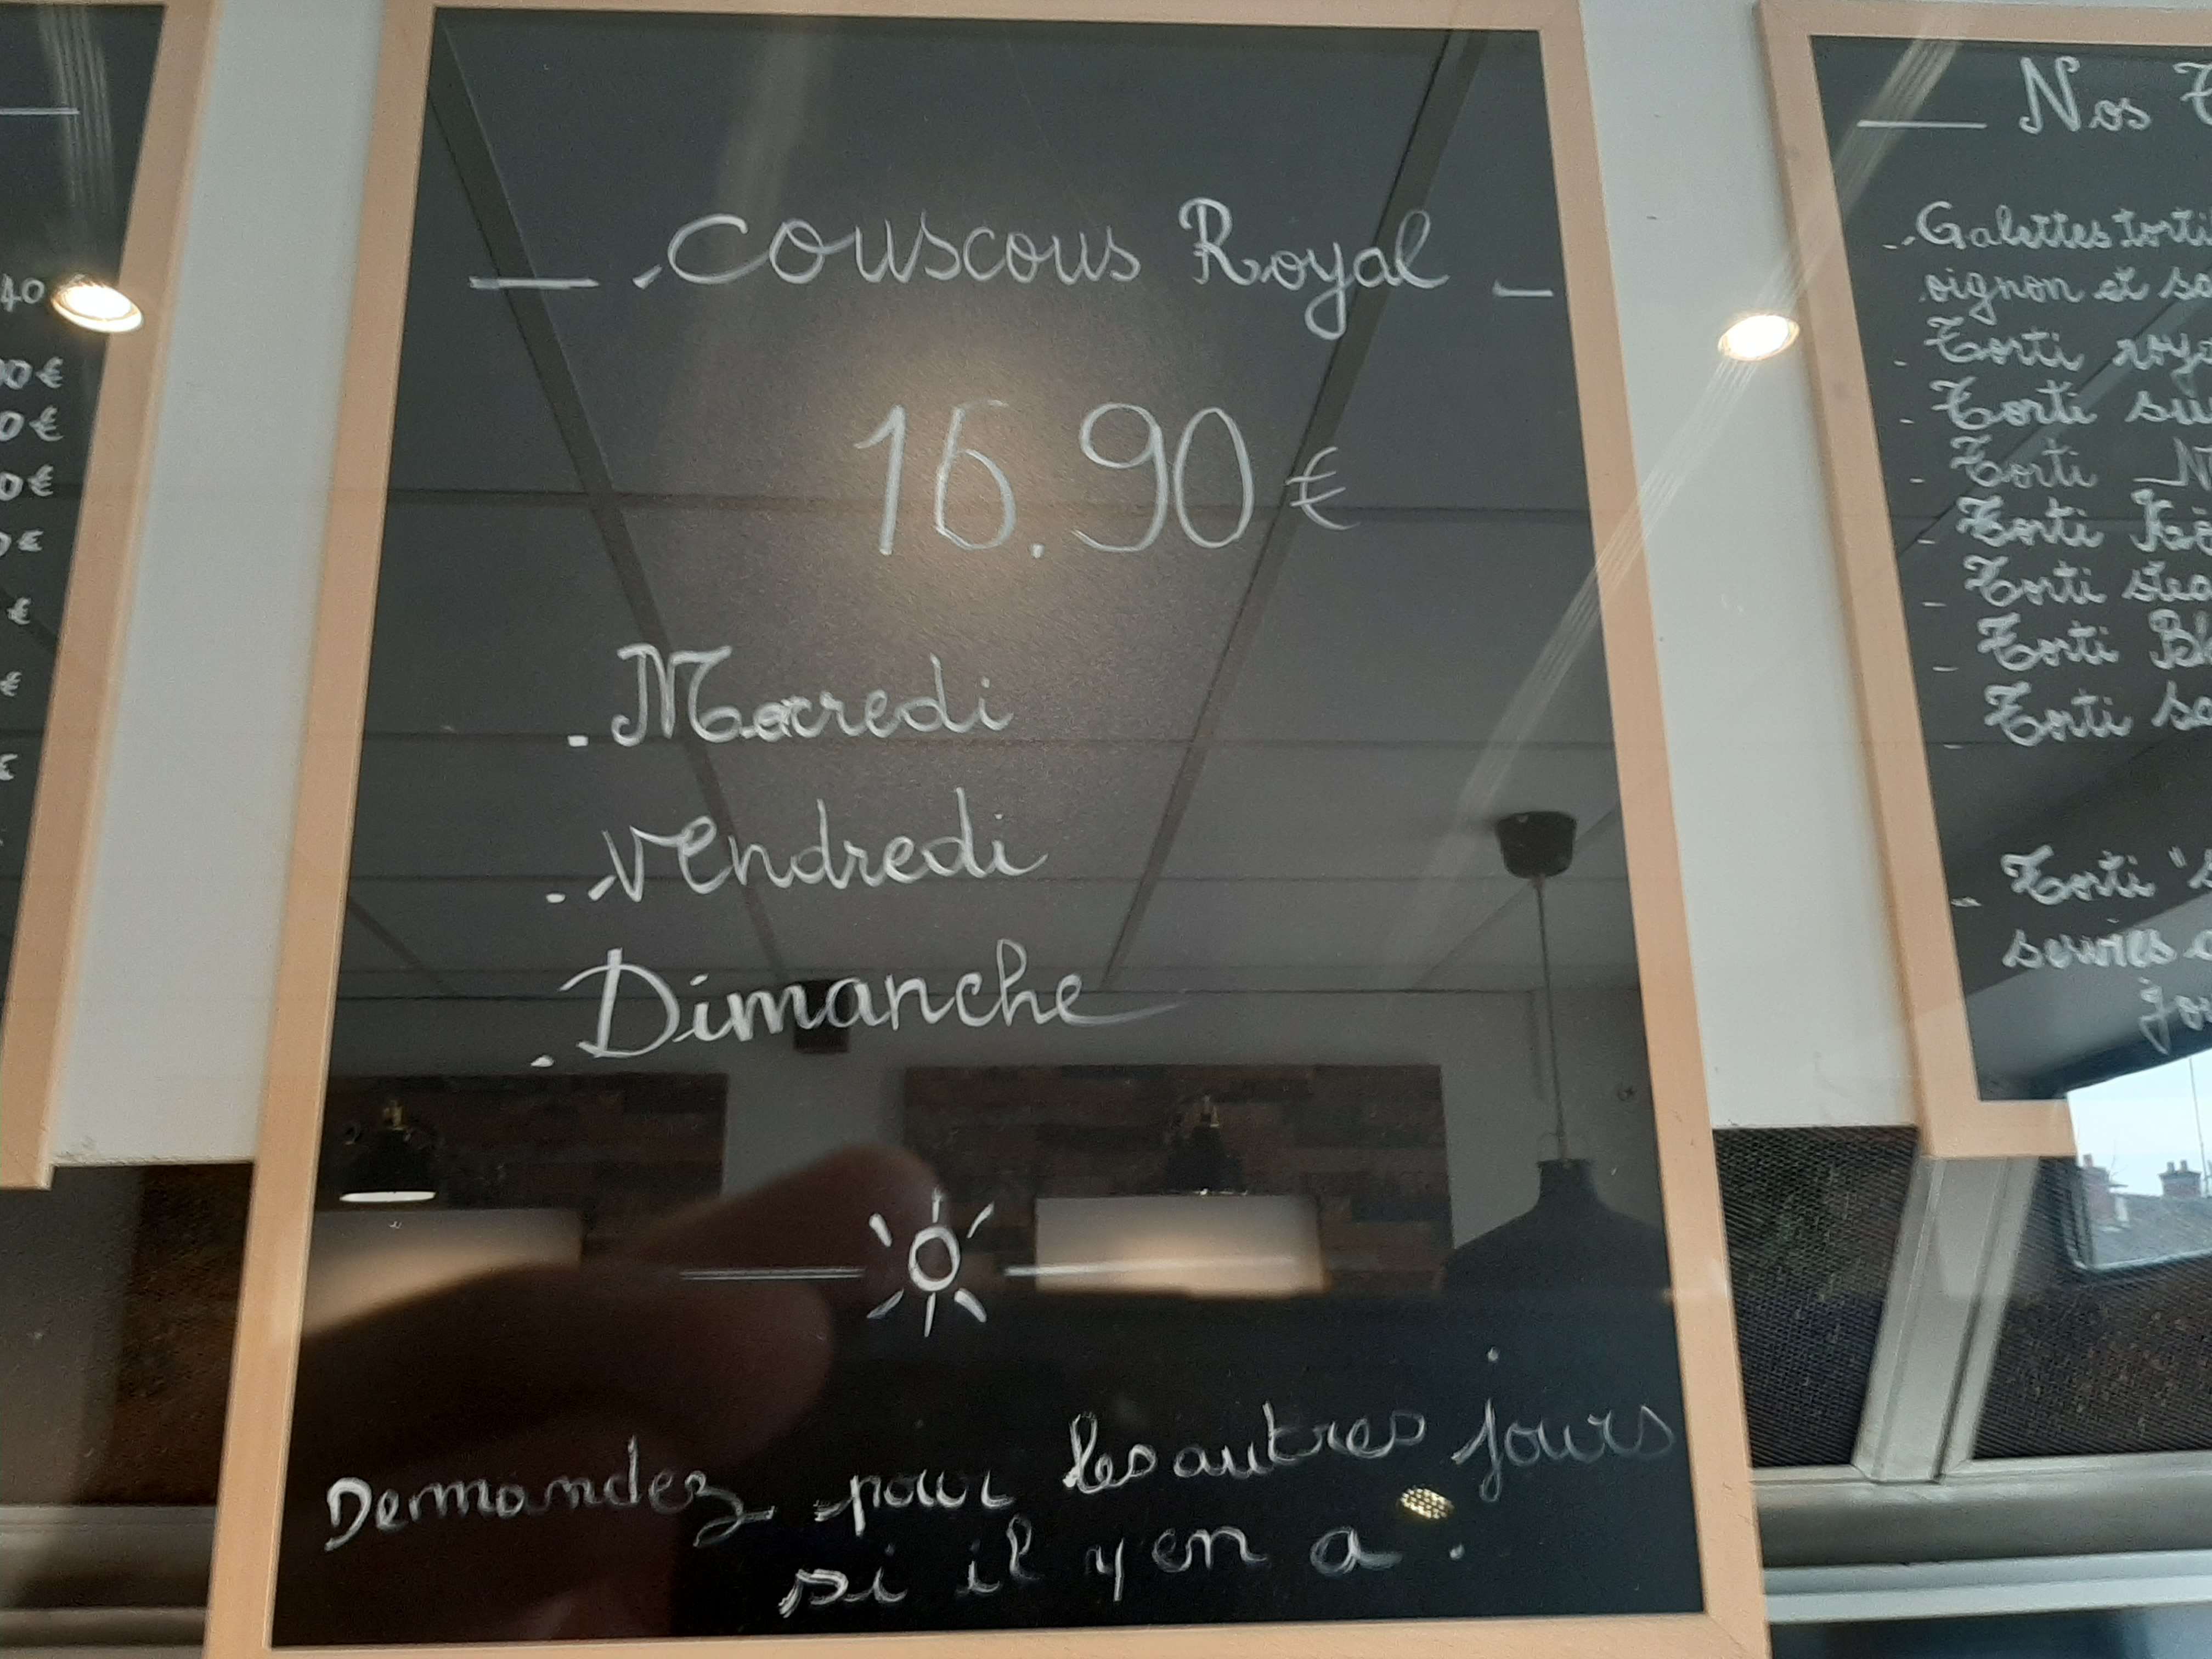 40
00€
0€
0€
0€
€
€
€
Couscous Royal
16.90€
. Mercredi
. Vendredi
. Dimanche
Demandez pour les autres jours
si il y en a.
Nos
- Galettes torti
oignon et
- Torti
- Torti
- Torti
- Torti
- Torti
- Torti
Torti
- Torti "
servies